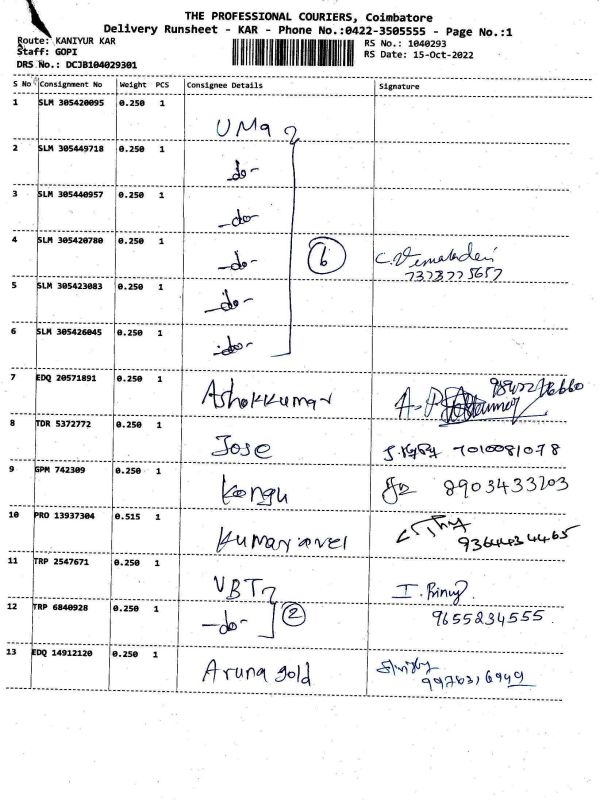 THE PROFESSIONAL COURIERS, Coimbatore
Delivery Runsheet - KAR - Phone No.:0422-3505555 - Page No.:1
Route: KANIYUR KAR
Staff: GOPI
DRS No.: DCJB104029301
RS No.: 1040293
RS Date: 15-Oct-2022
S No Consignment No Weight PCS Consignee Details Signature
1 SLM 305420095 0.250 1 UMa
2 SLM 305449718 0.250 1 -do-
3 SLM 305440957 0.250 1 -do-
4 SLM 305420780 0.250 1 -do- 6 C. Vemaladevi
7373775657
5 SLM 305423083 0.250 1 -do-
6 SLM 305426045 0.250 1 -do-
7 EDQ 20571891 0.250 1 Ashokkumar
8 TDR 5372772 0.250 1 Jose 7010081078
9 GPM 742309 0.250 1 Kongu 8903433203
10 PRO 13937304 0.515 1 Kumaravel
9364434465
11 TRP 2547671 0.250 1 VBT
12 TRP 6840928 0.250 1 -do- 2 9655234555
13 EDQ 14912120 0.250 1 Aruna gold